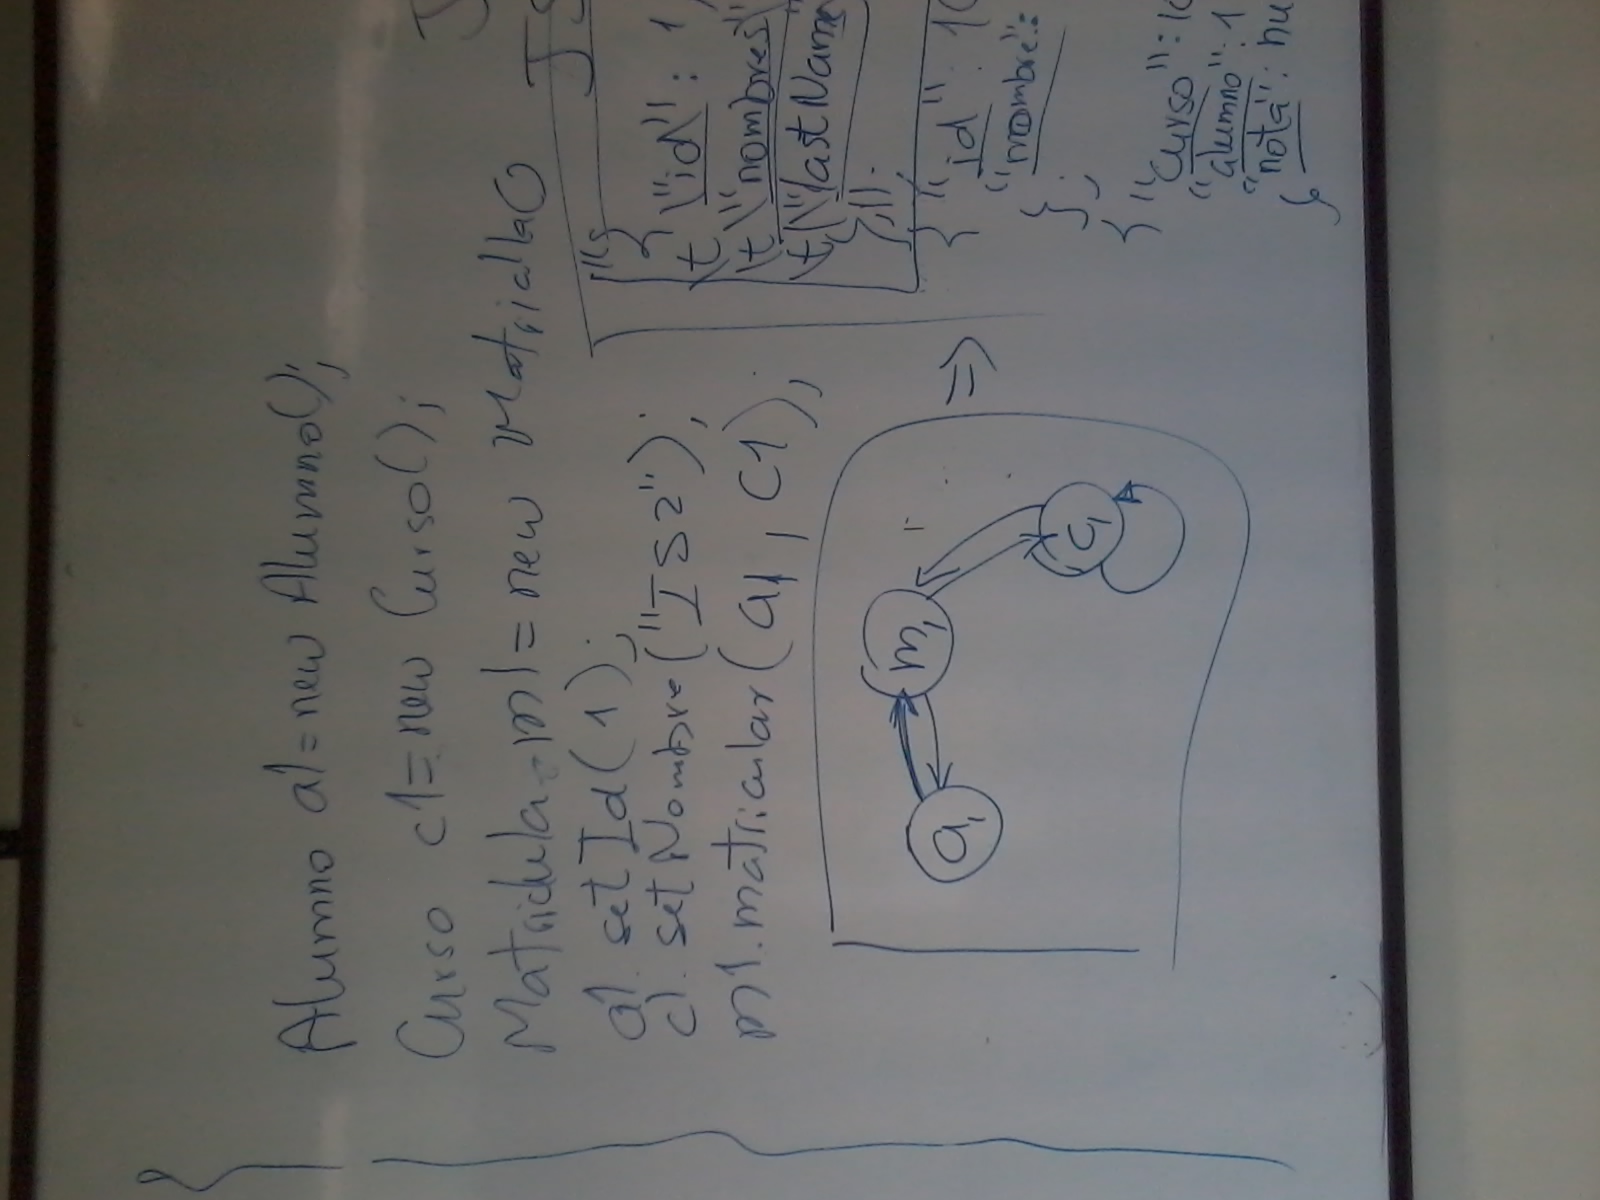 Alumno a1 = new Alumno();
Curso c1 = new Curso();
Matricula m1 = new
a1. setId(1);
c1. setNombre("IS2");
m1.matricular(a1, c1);
a1
m1
c1
⇒
JS
"{
\t \"id\": 1,
\t\"nombres\"
\t\"lastName
}";
{ "id": 10
"nombre":
};
{ "curso": 10
"alumno": 1
"nota": nu
}